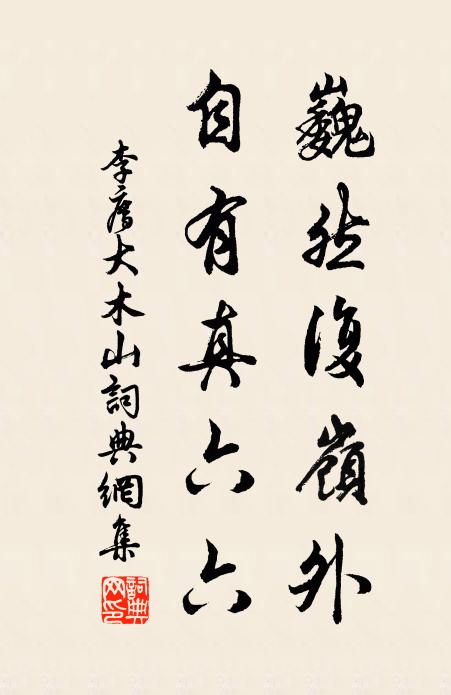 巍然復嶺外
自有真六六
李廌大木山詞典網集
詞典网印